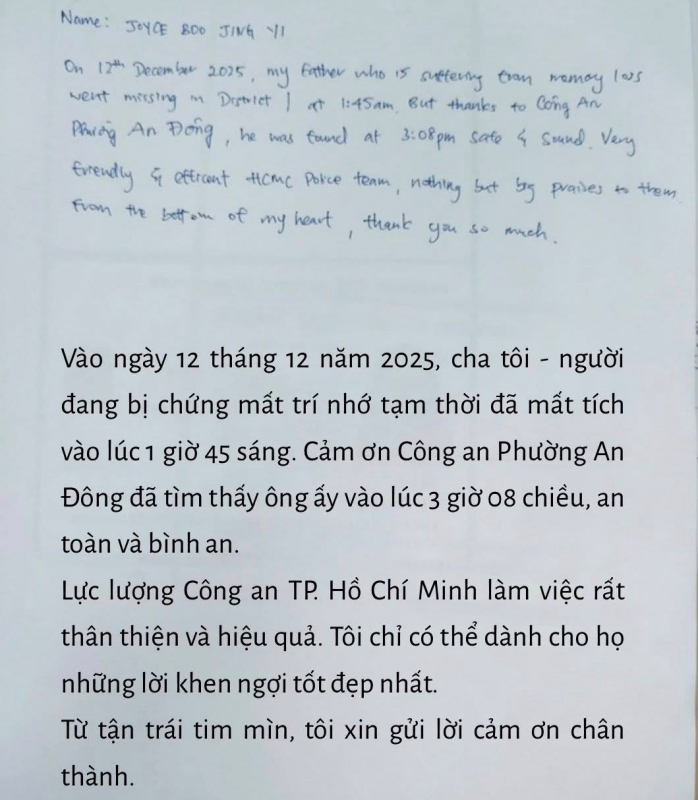 Name: JOYCE BOO JING YI
On 12th December 2025, my father who is suffering from memory loss
went missing in District 1 at 1:45am. But thanks to Công An
Phường An Đông, he was found at 3:08pm safe & sound. Very
friendly & efficient HCMC Police team, nothing but big praises to them.
From the bottom of my heart, thank you so much.
Vào ngày 12 tháng 12 năm 2025, cha tôi - người
đang bị chứng mất trí nhớ tạm thời đã mất tích
vào lúc 1 giờ 45 sáng. Cảm ơn Công an Phường An
Đông đã tìm thấy ông ấy vào lúc 3 giờ 08 chiều, an
toàn và bình an.
Lực lượng Công an TP. Hồ Chí Minh làm việc rất
thân thiện và hiệu quả. Tôi chỉ có thể dành cho họ
những lời khen ngợi tốt đẹp nhất.
Từ tận trái tim mìn, tôi xin gửi lời cảm ơn chân
thành.